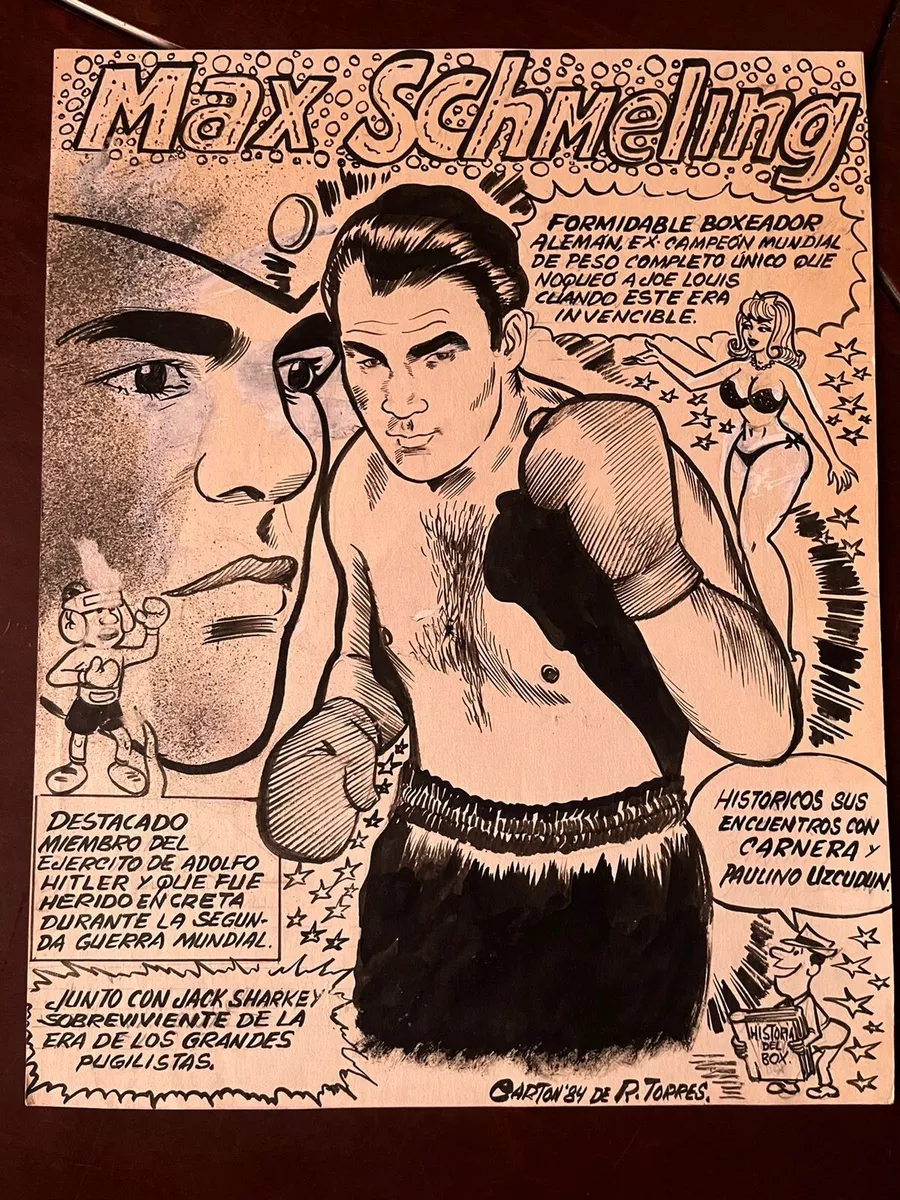 Max Schmeling
FORMIDABLE BOXEADOR
ALEMÁN, EX-CAMPEÓN MUNDIAL
DE PESO COMPLETO ÚNICO QUE
NOQUEÓ A JOE LOUIS
CUANDO ESTE ERA
INVENCIBLE.
HISTORICOS SUS
ENCUENTROS CON
CARNERA Y
PAULINO UZCUDUN
DESTACADO
MIEMBRO DEL
EJERCITO DE ADOLFO
HITLER Y QUE FUE
HERIDO EN CRETA
DURANTE LA SEGUN-
DA GUERRA MUNDIAL.
JUNTO CON JACK SHARKEY
SOBREVIVIENTE DE LA
ERA DE LOS GRANDES
PUGILISTAS.
HISTORIA
DEL
BOX.
CARTON '84 DE R. TORRES.